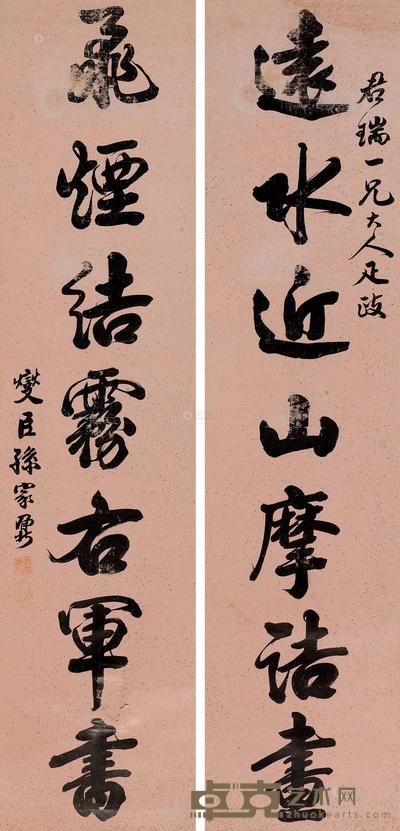 君瑞一兄大人疋政
遠水近山摩詰畫
飛煙結霧右軍書
燮臣孫家鼐
卓克艺术网
zhuokearts.com